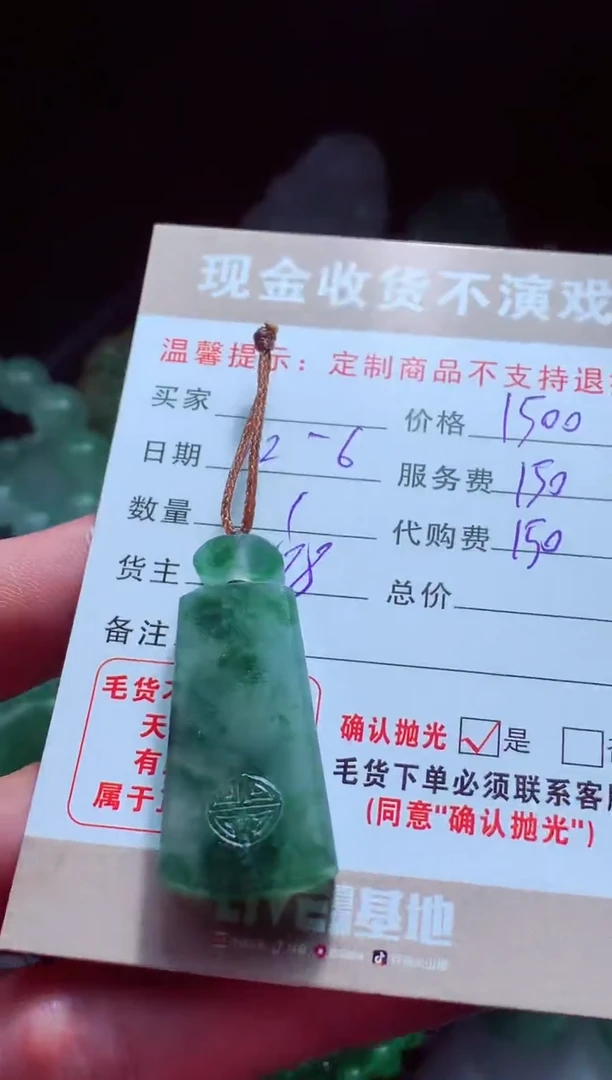 现金收货不演戏
温馨提示：定制商品不支持退
买家 价格 1500
日期 2-6 服务费 150
数量 1 代购费 150
货主 78 总价
备注
毛货
天
有
属于
确认抛光 是
毛货下单必须联系客
(同意"确认抛光")
基地